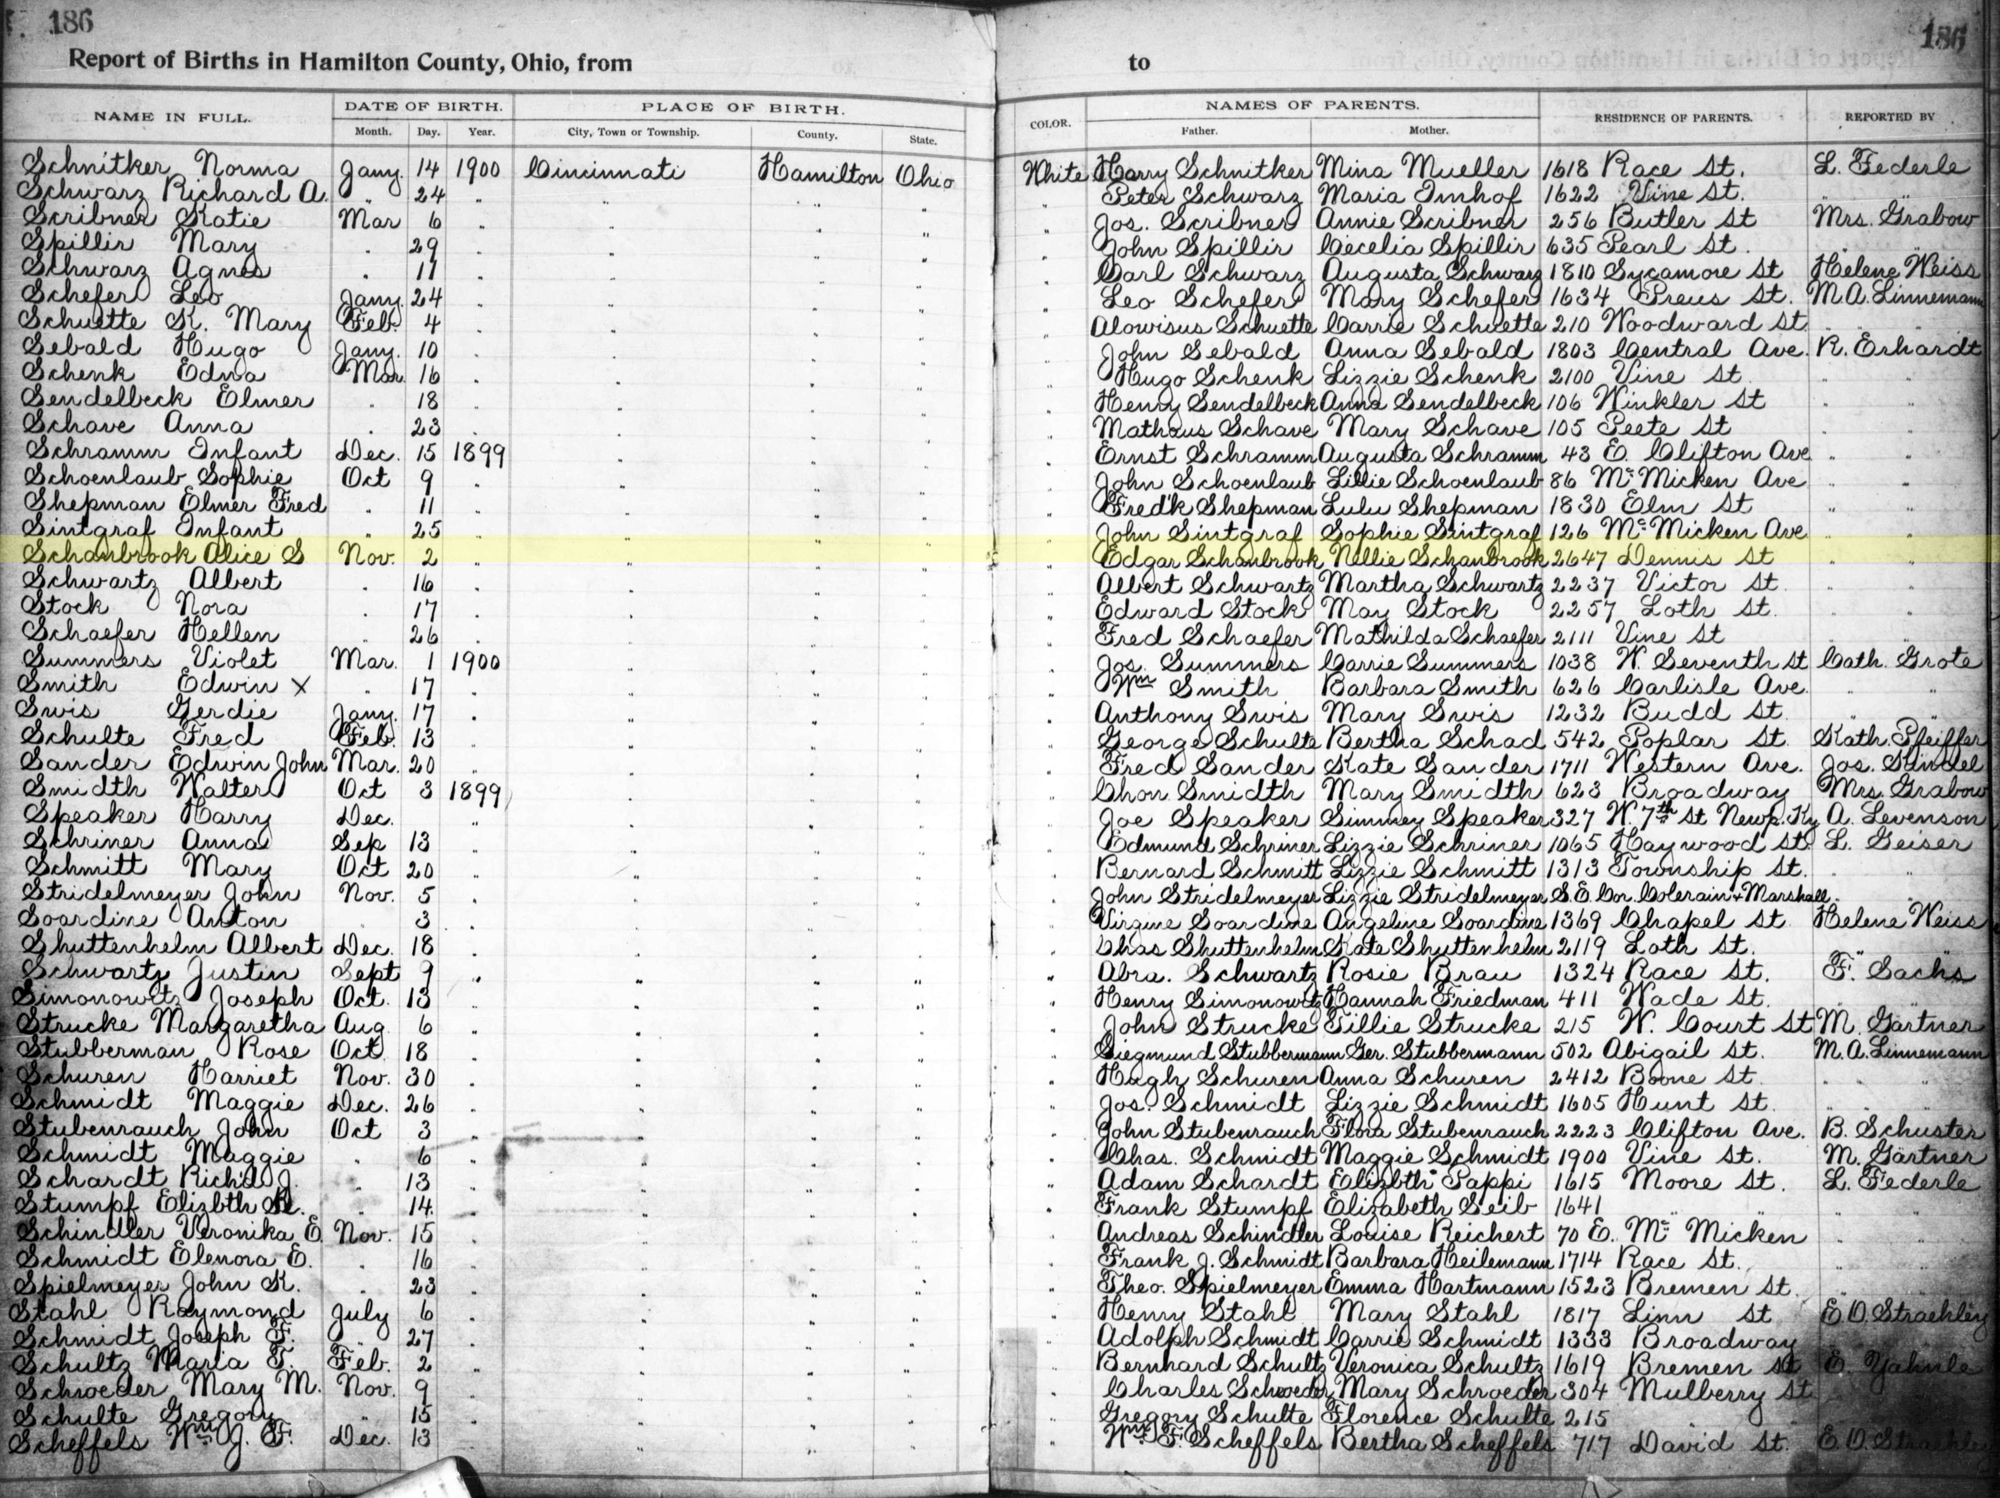 186
186
Report of Births in Hamilton County, Ohio, from to
NAME IN FULL. DATE OF BIRTH. PLACE OF BIRTH. COLOR. NAMES OF PARENTS. RESIDENCE OF PARENTS. REPORTED BY
Month. Day. Year. City, Town or Township. County. State. Father. Mother.
Schnitker Norma Jany. 14 1900 Cincinnati Hamilton Ohio White Harry Schnitker Mina Mueller 1618 Race St. L. Federle
Schwarz Richard A. " 24 " " " " " Peter Schwarz Maria Imhof 1622 Vine St. " "
Scribner Katie Mar 6 " " " " " Jos. Scribner Annie Scribner 256 Butler St Mrs. Grabow
Spillir Mary " 29 " " " " " John Spillir Cecelia Spillir 635 Pearl St. " "
Schwarz Agnes " 11 " " " " " Carl Schwarz Augusta Schwarz 1810 Sycamore St Helene Weiss
Schefer Leo Jany. 24 " " " " " Leo Schefer Mary Schefer 1634 Preus St. M.A. Linnemann
Schuette K. Mary Feb. 4 " " " " " Alowisus Schuette Carrie Schuette 210 Woodward St. " "
Sebald Hugo Jany. 10 " " " " " John Sebald Anna Sebald 1803 Central Ave. R. Erhardt
Schenk Edna Mar. 16 " " " " " Hugo Schenk Lizzie Schenk 2100 Vine St. " "
Sendelbeck Elmer " 18 " " " " " Henry Sendelbeck Anna Sendelbeck 106 Winkler St " "
Schave Anna " 23 " " " " " Mathaus Schave Mary Schave 105 Peete St " "
Schramm Infant Dec. 15 1899 " " " " Ernst Schramm Augusta Schramm 43 E. Clifton Ave " "
Schoenlaub Sophie Oct 9 " " " " " John Schoenlaub Lillie Schoenlaub 86 Mc Micken Ave " "
Shepman Elmer Fred " 11 " " " " " Fredk Shepman Lulu Shepman 1830 Elm St " "
Sintgraf Infant " 25 " " " " " John Sintgraf Sophie Sintgraf 126 Mc Micken Ave " "
Schanbrook Alice S Nov. 2 " " " " " Edgar Schanbrook Nellie Schanbrook 2647 Dennis St " "
Schwartz Albert " 16 " " " " " Albert Schwartz Martha Schwartz 2237 Victor St. " "
Stock Nora " 17 " " " " " Edward Stock May Stock 2257 Loth St. " "
Schaefer Hellen " 26 " " " " " Fred Schaefer Mathilda Schaefer 2111 Vine St " "
Summers Violet Mar. 1 1900 " " " " Jos. Summers Carrie Summers 1038 W. Seventh St Cath. Grote
Smith Edwin x " 17 " " " " " Wm Smith Barbara Smith 626 Carlisle Ave. " "
Swis Gerdie Jany. 17 " " " " " Anthony Swis Mary Swis 1232 Budd St. " "
Schulte Fred Feb. 13 " " " " " George Schulte Bertha Schad 542 Poplar St. Kath. Pfeiffer
Sander Edwin John Mar. 20 " " " " " Fred Sander Kate Sander 1711 Western Ave. Jos.
Smidth Walter Oct 3 1899 " " " " Chon Smidth Mary Smidth 623 Broadway Mrs. Grabow
Speaker Harry Dec. " " " " " Joe Speaker Simmey Speaker 327 W. 7th St Newp. Ky A. Levenson
Schriner Anna Sep 13 " " " " " Edmund Schriner Lizzie Schriner 1065 Haywood St. L. Geiser
Schmitt Mary Oct 20 " " " " " Bernard Schmitt Lizzie Schmitt 1313 Township St. " "
Stridelmeyer John Nov. 5 " " " " " John Stridelmeyer Lizzie Stridelmeyer S.E. Cor. Colerain & Marshall " "
Soardine Anton " 3 " " " " " Virgine Soardine Angeline Soardine 1369 Chapel St Helene Weiss
Shuttenhelm Albert Dec. 18 " " " " " Chas Shuttenhelm Kate Shuttenhelm 2119 Loth St. " "
Schwartz Justin Sept 9 " " " " " Abra. Schwartz Rosie Brau 1324 Race St. F. Sachs
Simonowitz Joseph Oct. 13 " " " " " Henry Simonowitz Hannah Friedman 411 Wade St. " "
Strucke Margaretha Aug. 6 " " " " " John Strucke Tillie Strucke 215 W. Court St M. Gartner
Stubberman Rose Oct. 18 " " " " " Siegmund Stubbermann Ger. Stubbermann 502 Abigail St. M.A. Linnemann
Schuren Harriet Nov. 30 " " " " " Hugh Schuren Anna Schuren 2412 Boone St. " "
Schmidt Maggie Dec. 26 " " " " " Jos. Schmidt Lizzie Schmidt 1605 Hunt St. " "
Stubenrauch John Oct 3 " " " " " John Stubenrauch Flora Stubenrauch 2223 Clifton Ave. B. Schuster
Schmidt Maggie " 6 " " " " " Chas. Schmidt Maggie Schmidt 1900 Vine St. M. Gartner
Schardt Rich'd J. " 13 " " " " " Adam Schardt Elizbth Pappi 1615 Moore St. L. Federle
Stumpf Elizbth " 14 " " " " " Frank Stumpf Elizabeth Seib 1641 " " " "
Schindler Veronika E. Nov. 15 " " " " " Andreas Schindler Louise Reichert 70 E. Mc Micken " "
Schmidt Elenora E. " 16 " " " " " Frank J. Schmidt Barbara Heilemann 1714 Race St. " "
Spielmeyer John K. " 23 " " " " " Theo. Spielmeyer Emma Hartmann 1523 Bremen St. " "
Stahl Raymond July 6 " " " " " Henry Stahl Mary Stahl 1817 Linn St E.O. Straehley
Schmidt Joseph F. " 27 " " " " " Adolph Schmidt Carrie Schmidt 1333 Broadway
Schultz Maria T. Feb. 2 " " " " " Bernhard Schultz Veronica Schultz 1619 Bremen St E.
Schroeder Mary M. Nov. 9 " " " " " Charles Schroeder Mary Schroeder 304 Mulberry St
Schulte Gregory " 15 " " " " " Gregory Schulte Florence Schulte 215
Scheffels Wm. J. F. Dec. 13 " " " " " Wm. F. Scheffels Bertha Scheffels 717 David St. E.O. Straehley